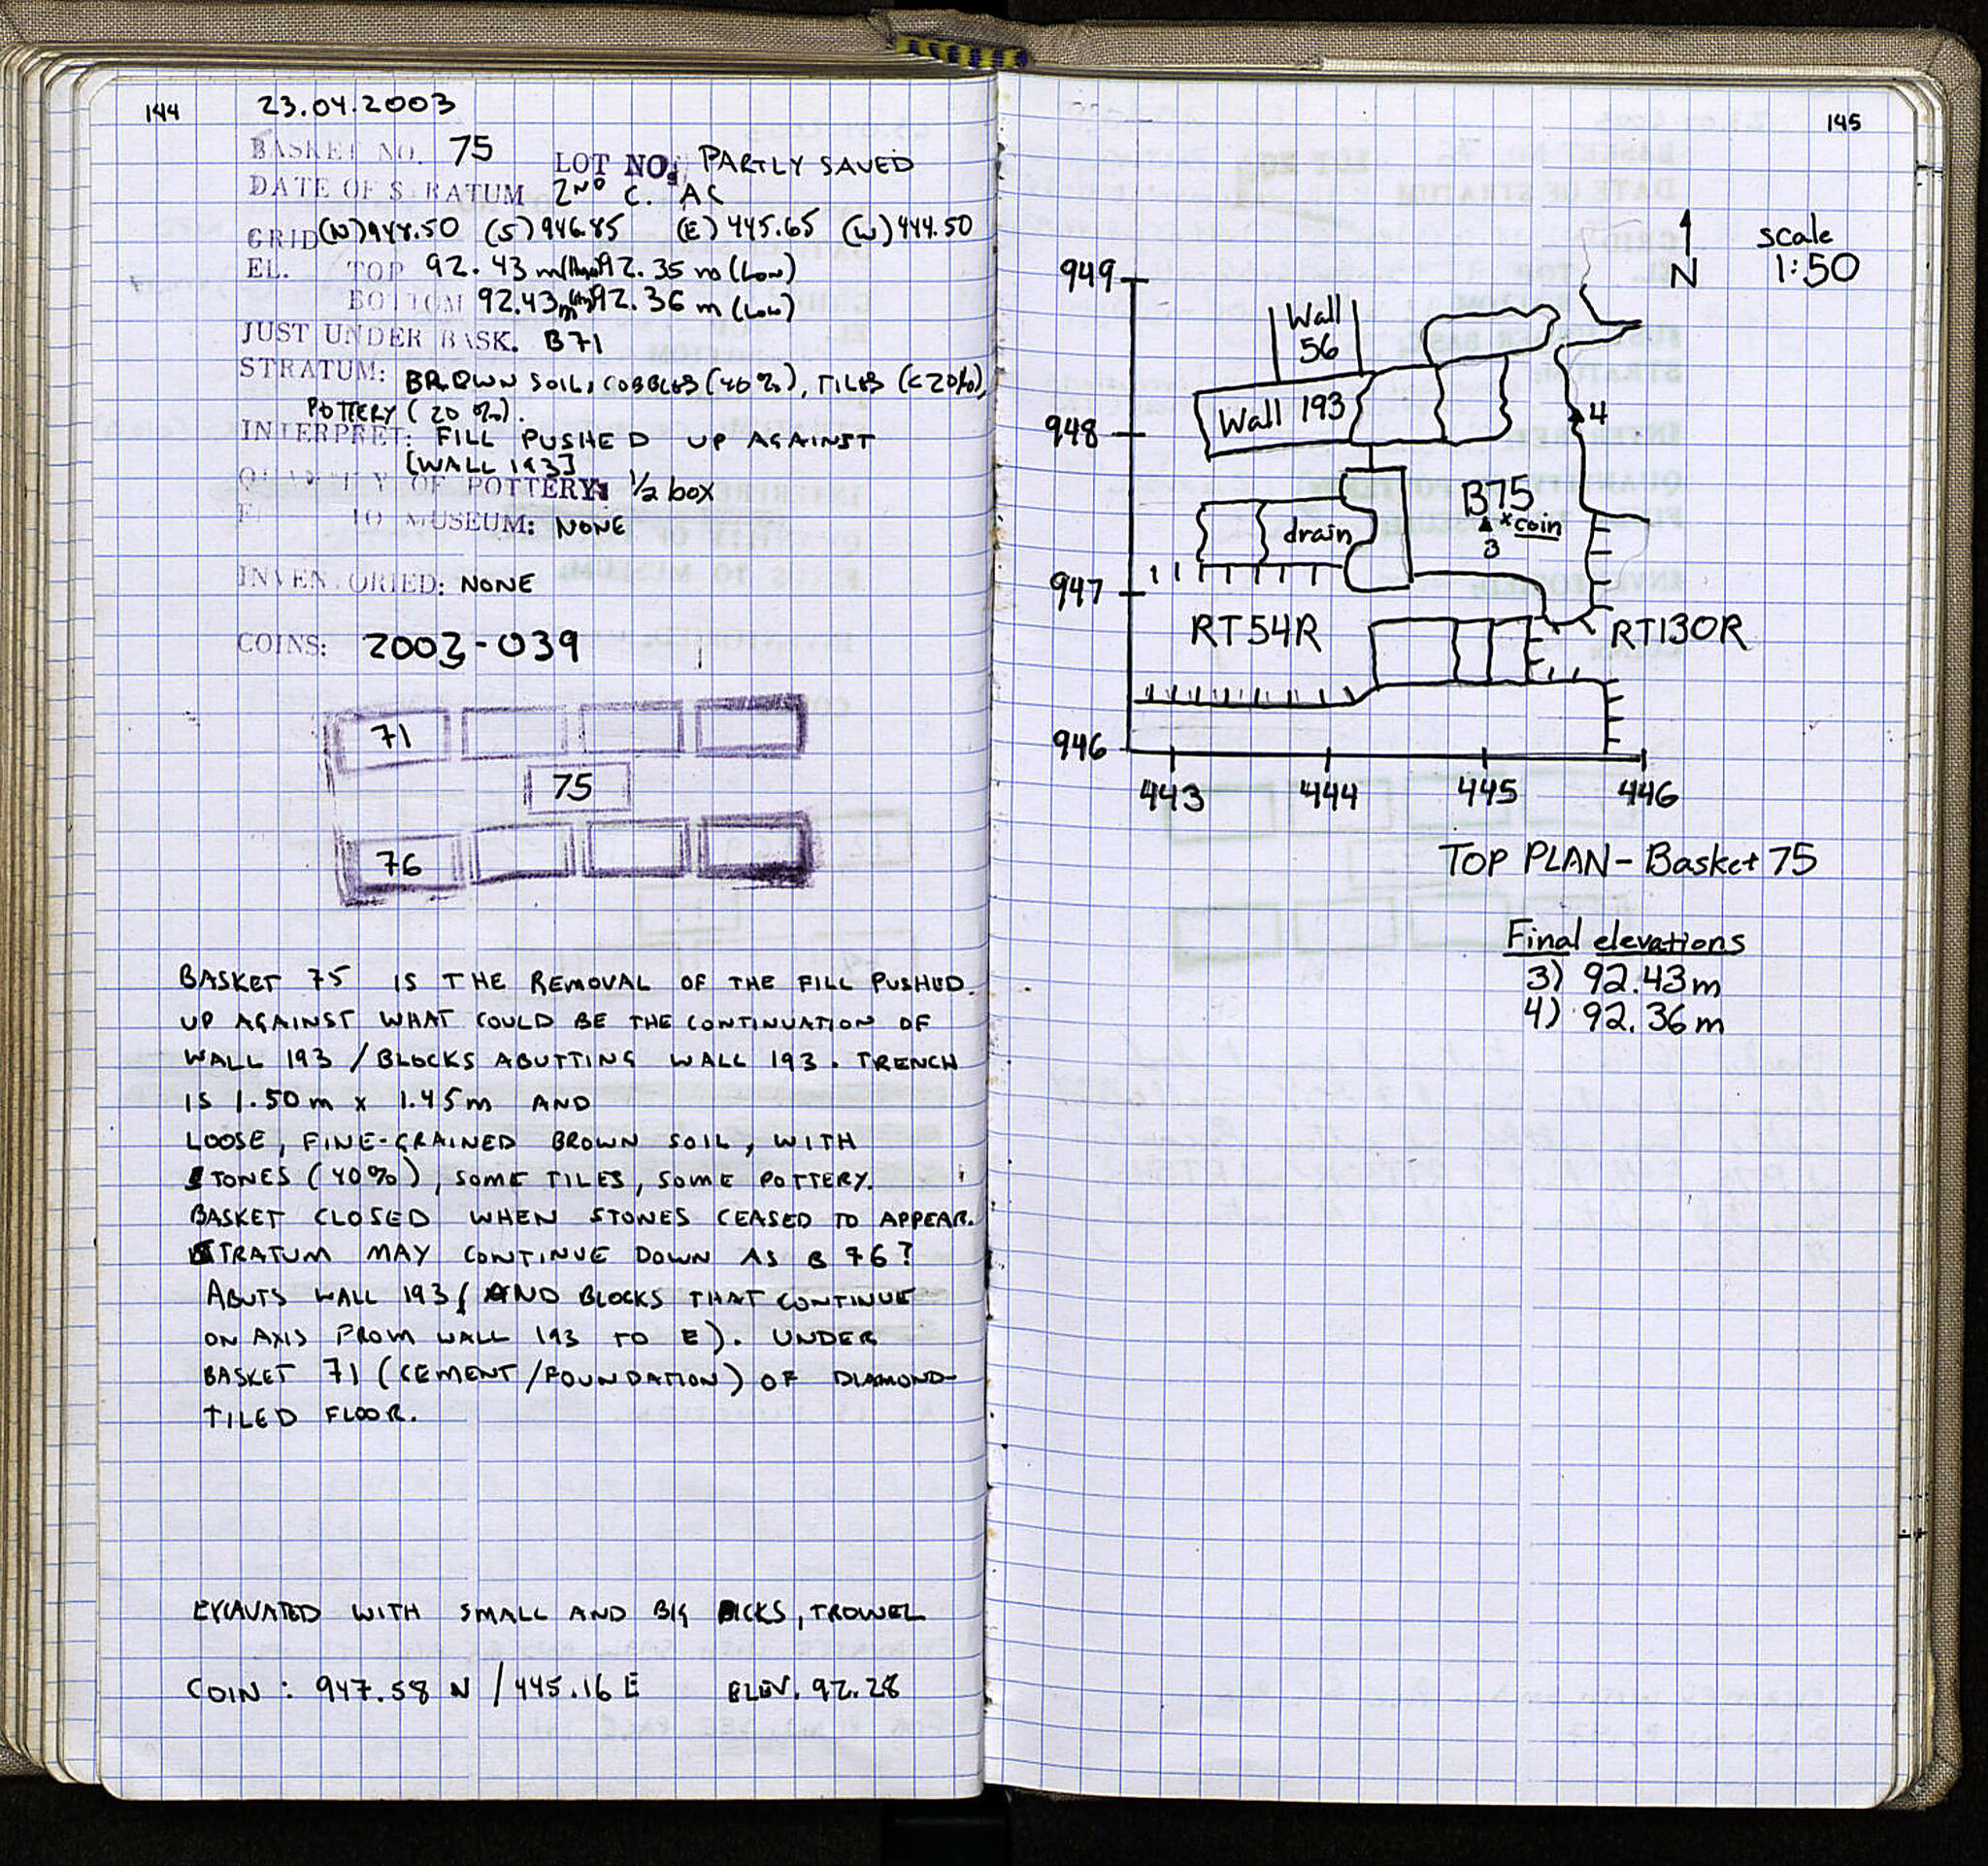 144
23.04.2003
BASKET NO. 75 LOT NO. PARTLY SAVED
DATE OF STRATUM 2ND C. AC
GRID (N) 948.50 (S) 946.85 (E) 445.65 (W) 444.50
EL. TOP 92.43 m (High) 92.35 m (Low)
BOTTOM 92.43 m 92.36 m (Low)
JUST UNDER BASK. B71
STRATUM: BROWN SOIL, COBBLES (40%), TILES (<20%),
POTTERY (20%).
INTERPRET: FILL PUSHED UP AGAINST
[WALL 193]
QUANTITY OF POTTERY: 1/2 box
TO MUSEUM: NONE
INVENTORIED: NONE
COINS: 2003-039
71
75
76
BASKET 75 IS THE REMOVAL OF THE FILL PUSHED
UP AGAINST WHAT COULD BE THE CONTINUATION OF
WALL 193 / BLOCKS ABUTTING WALL 193. TRENCH
IS 1.50m x 1.45m AND
LOOSE, FINE-GRAINED BROWN SOIL, WITH
STONES (40%), SOME TILES, SOME POTTERY.
BASKET CLOSED WHEN STONES CEASED TO APPEAR.
STRATUM MAY CONTINUE DOWN AS B 76?
ABUTS WALL 193 (AND BLOCKS THAT CONTINUE
ON AXIS FROM WALL 193 TO E). UNDER
BASKET 71 (CEMENT/FOUNDATION) OF DIAMOND-
TILED FLOOR.
EXCAVATED WITH SMALL AND BIG PICKS, TROWEL
COIN: 947.58 N / 445.16 E ELEV. 92.28
145
N
scale
1:50
949
948
947
946
Wall
56
Wall 193
4
B75
x coin
3
drain
RT54R
RT130R
443 444 445 446
TOP PLAN - Basket 75
Final elevations
3) 92.43m
4) 92.36m